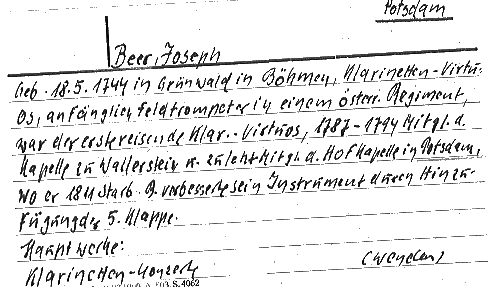 Potsdam
Beer, Joseph
Geb. 18.5.1744 in Grünwald in Böhmen, Klarinetten-Virtu-
os, anfänglich Feldtrompeter in einem österr. Regiment,
war der erste reisende Klar.-Virtuos, 1787-1794 Mitgl. d.
Kapelle zu Wallerstein u. zuletzt Mitgl. d. Hofkapelle in Potsdam,
wo er 1811 starb. B. verbesserte sein Instrument durch Hinzu-
fügung der 5. Klappe.
Hauptwerke:
Klarinetten-Konzerte (Weyden)
S. 4062